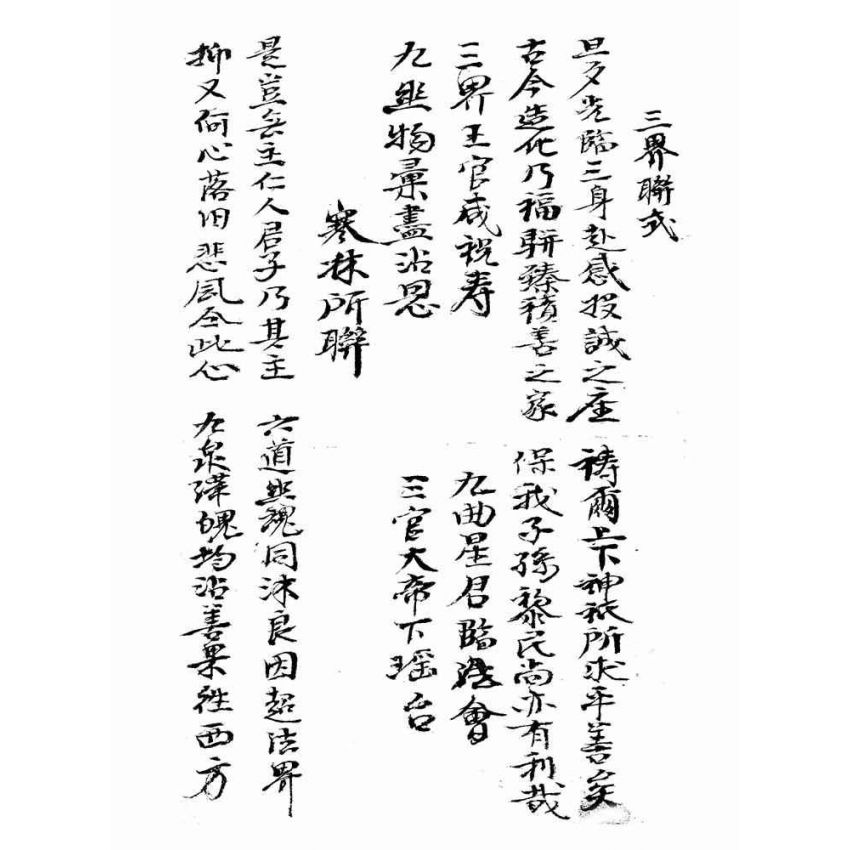 三界聯式
旦夕光臨三身赴感投誠之座
古今造化乃福駢臻積善之家
三界王官咸祝寿
九幽物彙盡沾恩
禱爾上下神祇所求平善矣
保我子孫黎民尚亦有利哉
九曲星君臨法會
三官大帝下瑶台
寒林所聯
是豈無主仁人君子乃其主
抑又何心落日悲風今此心
六道幽魂同沐良因超法界
九泉滯魄均沾善果徃西方